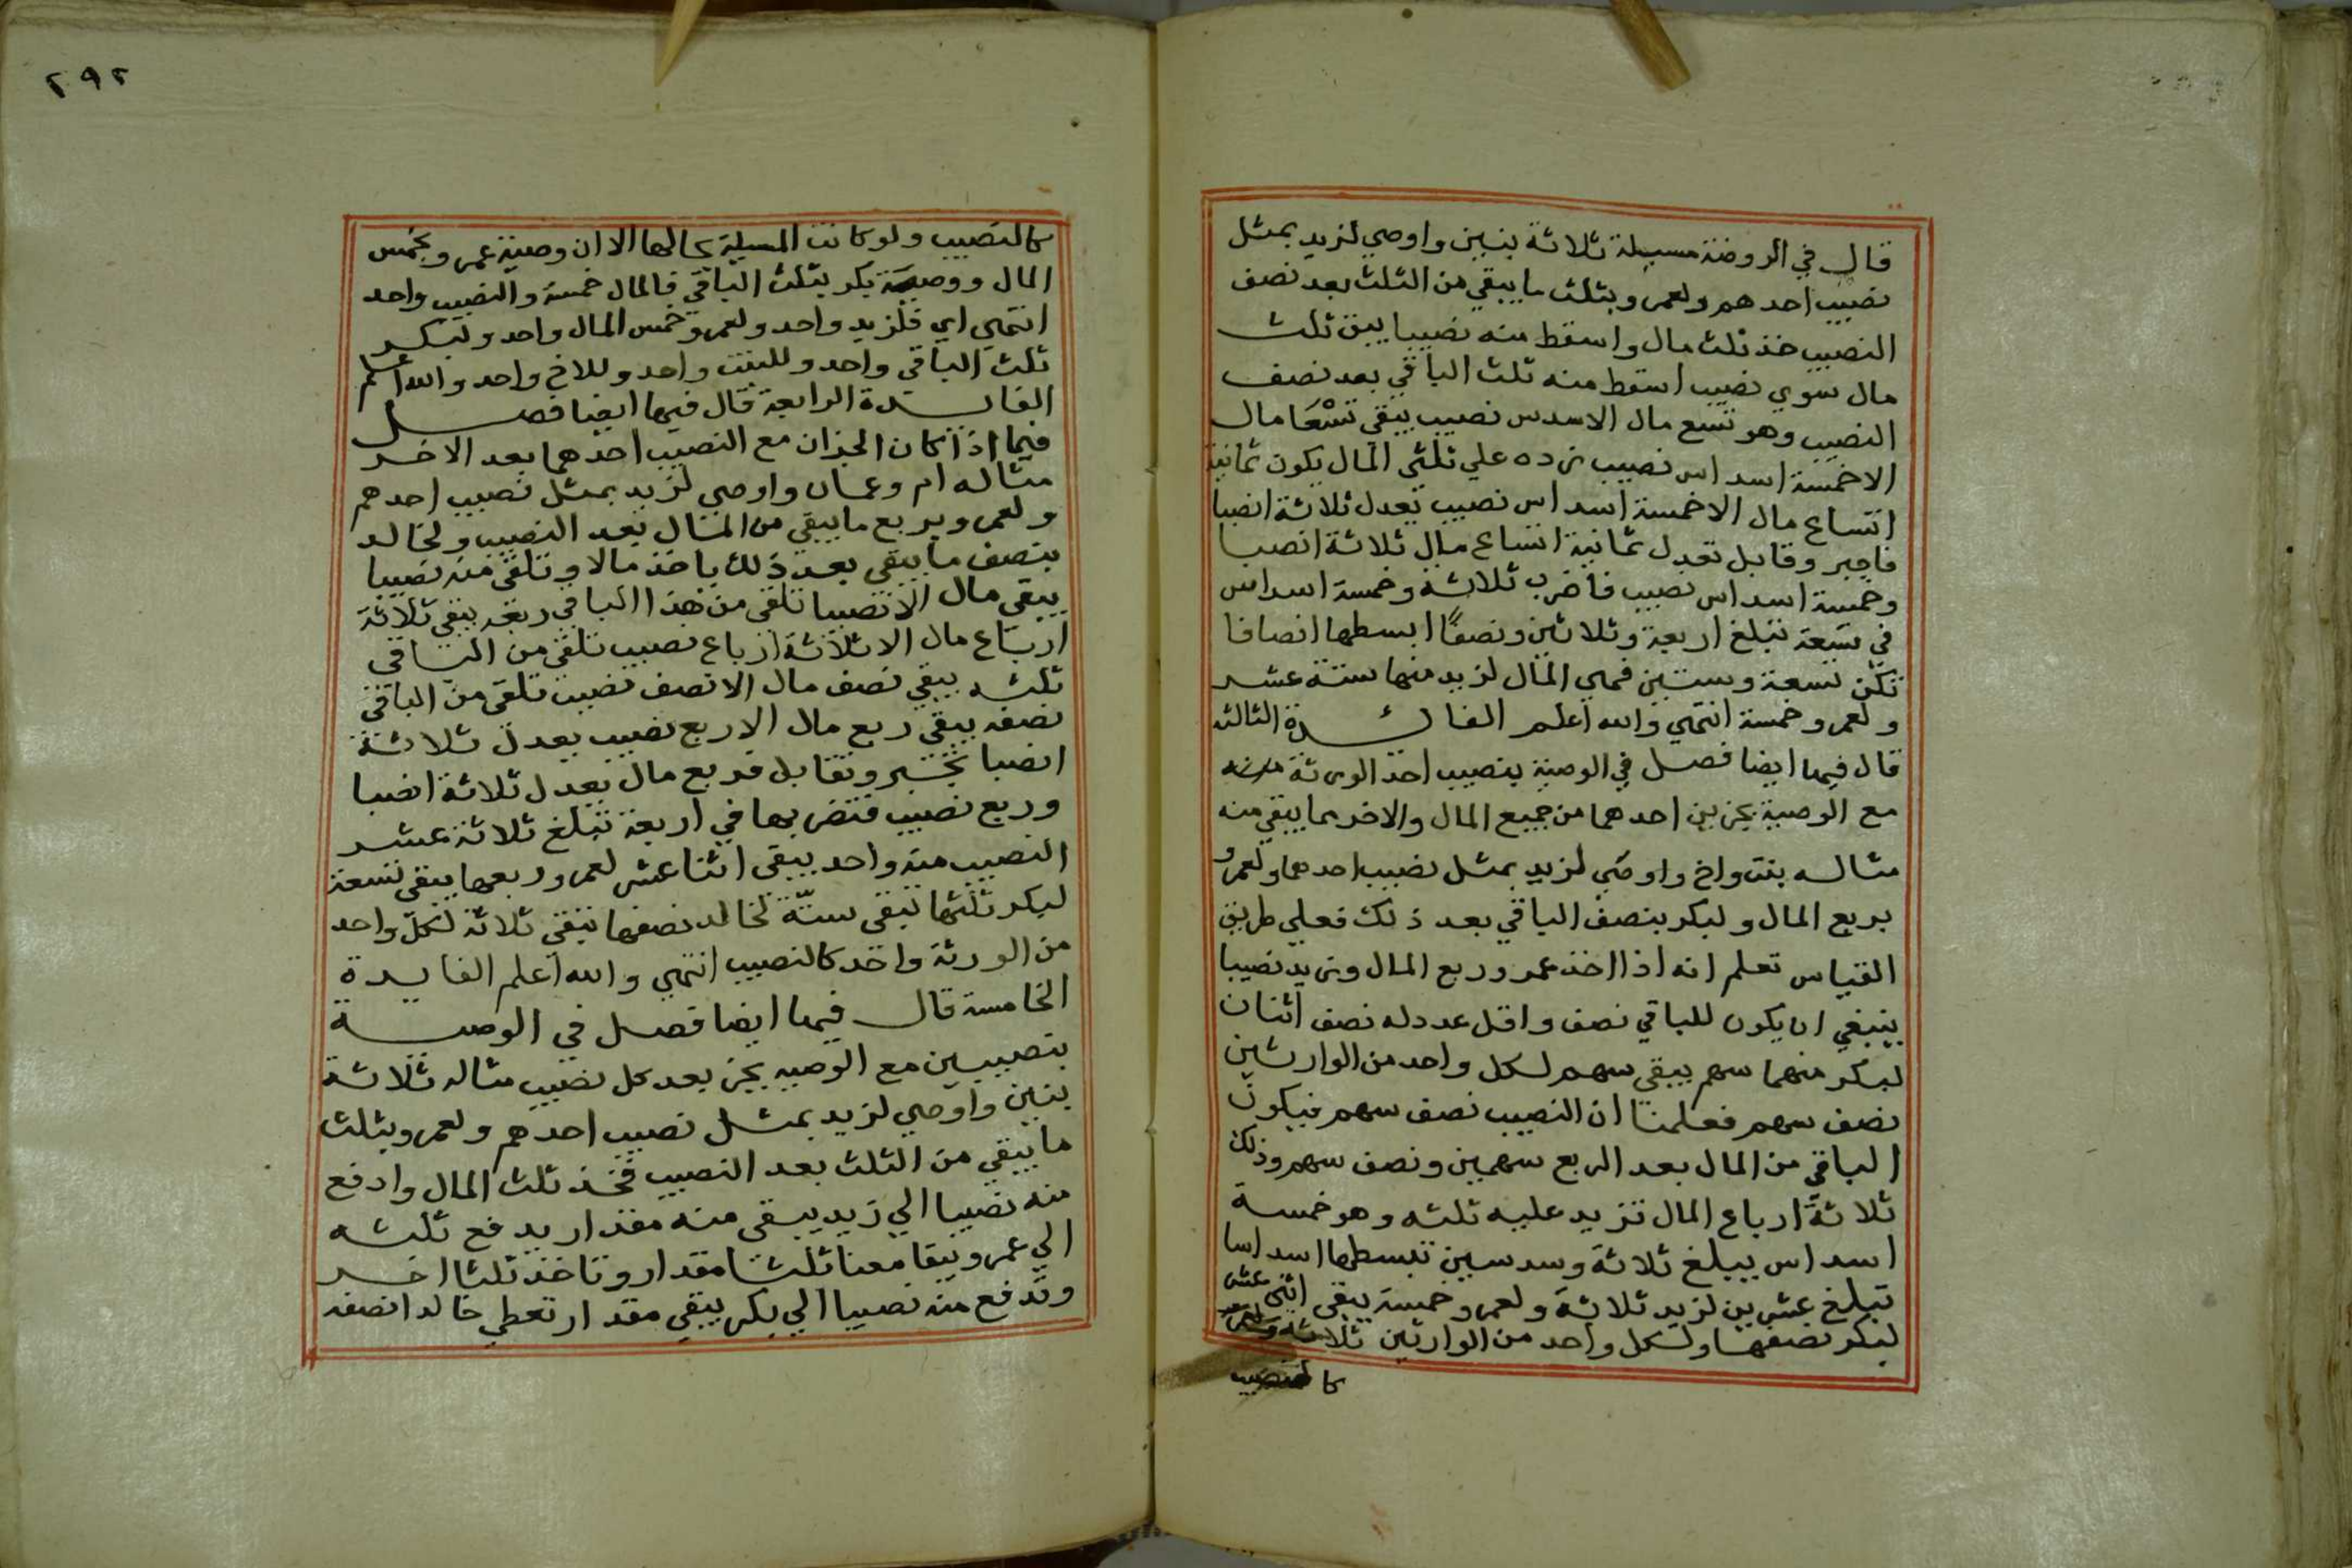 قال في الروضة مسيلة ثلاثة بنين واوصي لزيد بمثل
نصيب احدهم ولعمرو بثلث ما يبقي من الثلث بعد نصف
النصيب خذ ثلث مال واسقط منه نصيبا يبق ثلث
مال سوي نصيب اسقط منه ثلث الباقي بعد نصف
النصيب وهو تسع مال الاسدس نصيب يبقي تسعا مال
الاخمسة اسداس نصيب زده علي ثلثي المال يكون ثمانية
اتساع مال الاخمسة اسداس نصيب تعدل ثلاثة انصبا
فاجبر وقابل تعدل ثمانية اتساع مال ثلاثة انصبا
وخمسة اسداس نصيب فاضرب ثلاثة وخمسة اسداس
في تسعة تبلغ اربعة وثلاثين ونصفا ابسطها انصافا
تكن تسعة وستين فهي المال لزيد منها ستة عشر
ولعمرو خمسة انتهي والله اعلم الفائدة الثالثه
قال فيها ايضا فصل في الوصية بنصيب احد الورثة
مع الوصية بجزين احدهما من جميع المال والاخر بما يبقي منه
مثاله بنت واخ واوصي لزيد بمثل نصيب احدهما ولعمرو
بربع المال ولبكر بنصف الباقي بعد ذلك فعلي طريق
القياس تعلم انه اذا اخذ عمرو ربع المال وزيد نصيبا
ينبغي ان يكون للباقي نصف واقل عدد له نصف اثنان
لبكر منهما سهم يبقي سهم لكل واحد من الوارثين
نصف سهم فعلمنا ان النصيب نصف سهم فيكون
الباقي من المال بعد الربع سهمين ونصف سهم وذلك
ثلاثة ارباع المال تزيد عليه ثلثه وهو خمسة
اسداس يبلغ ثلاثة وسدسين تبسطها اسداسا
تبلغ عشرين لزيد ثلاثة ولعمرو خمسة يبقي اثني عشر
لبكر نصفها ولكل واحد من الوارثين ثلاثة
كالنصيب
٢٩٢
كالنصيب ولو كانت المسيلة بحالها الا ان وصية عمرو بخمس
المال ووصية بكر بثلث الباقي فالمال خمسة والنصيب واحد
انتهي اي فلزيد واحد ولعمرو خمس المال واحد ولبكر
ثلث الباقي واحد وللبنت واحد وللاخ واحد والله اعلم
الفايدة الرابعة قال فيها ايضا فصل
فيما اذا كان الجزان مع النصيب احدهما بعد الاخر
مثاله ام وعمان واوصي لزيد بمثل نصيب احدهم
ولعمرو بربع ما يبقي من المال بعد النصيب ولخالد
بنصف ما يبقي بعد ذلك ياخذ مالا وتلقي منه نصيبا
يبقي مال الا نصيبا تلقي من هذا الباقي ربعه يبقي ثلاثة
ارباع مال الا ثلاثة ارباع نصيب تلقي من الباقي
ثلثه يبقي نصف مال الا نصف نصيب تلقي من الباقي
نصفه يبقي ربع مال الا ربع نصيب يعدل ثلاثة
انصبا تجبر وتقابل فربع مال يعدل ثلاثة انصبا
وربع نصيب فتضربها في اربعة تبلغ ثلاثة عشر
النصيب منه واحد يبقي اثنا عشر لعمرو ربعها يبقي تسعة
لبكر ثلثها تبقي ستة لخالد نصفها تبقي ثلاثة لكل واحد
من الورثة واحد كالنصيب انتهي والله اعلم الفايدة
الخامسة قال فيها ايضا فصل في الوصية
بنصيبين مع الوصيه بجز بعد كل نصيب مثاله ثلاثة
بنين واوصي لزيد بمثل نصيب احدهم ولعمرو بثلث
ما يبقي من الثلث بعد النصيب فخذ ثلث المال وادفع
منه نصيبا الي زيد يبقي منه مقدار يدفع ثلثه
الي عمرو يبقا معنا ثلثا مقدار وتاخذ ثلثا اخر
وتدفع منه نصيبا الي بكر يبقي مقدار تعطي خالدا نصفه